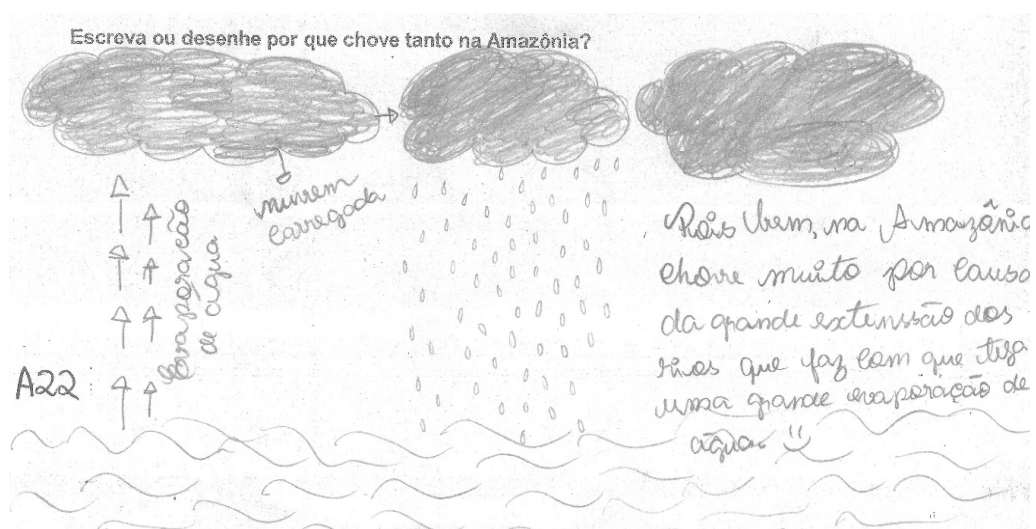 Escreva ou desenhe por que chove tanto na Amazônia?
nuvem
carregada
Evaporação
de agua
A22
Pois bem, na Amazônia
chove muito por causa
da grande extenssão dos
rios que faz com que
uma grande evaporação de
água. :)